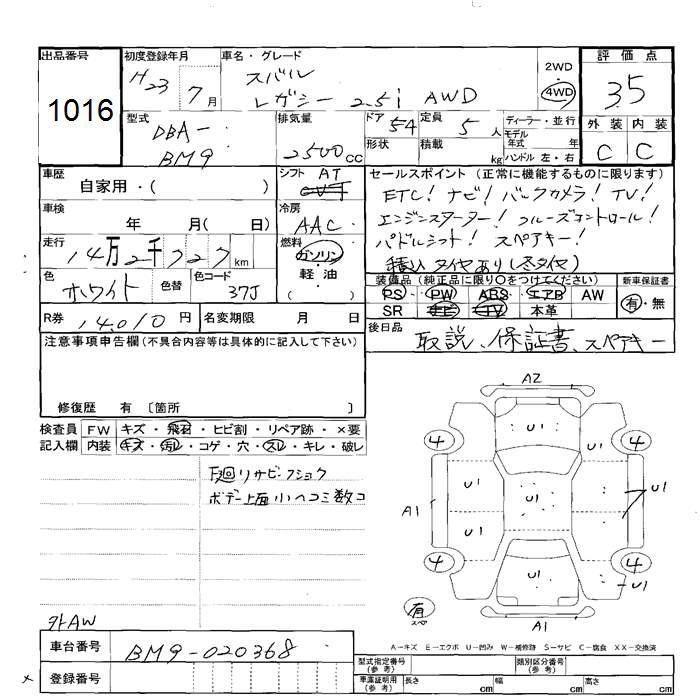 出品番号 初度登録年月 車名・グレード 評価点
1016 H23 7月 スバル 2WD 3.5
レガシー 2.5i AWD 4WD
型式 排気量 ドア 定員 ディーラー・並行 外装 内装
DBA- 54 5人 モデル年式 年 C C
BM9 2500cc 形状 積載 kg ハンドル 左・右
車歴 シフト AT セールスポイント (正常に機能するものに限ります)
自家用・( ) ETC! ナビ! バックカメラ! TV!
車検 冷房 エンジンスターター! クルーズコントロール!
年 月( 日) AAC パドルシフト! スペアキー!
走行 燃料 積込タイヤあり(冬タイヤ)
14万2千727km ガソリン 装備品 (純正品に限り○をつけてください) 新車保証書
色 色替 色コード 軽油 PS PW ABS エアB AW 有・無
ホワイト 37J ( ) SR ナビ TV 本革
R券 14,010円 名変期限 月 日 後日品
取説、保証書、スペアキー
注意事項申告欄(不具合内容等は具体的に記入して下さい)
修復歴 有 〔箇所 〕
検査員 FW キズ・飛石・ヒビ割・リペア跡・×要
記入欄 内装 キズ・汚れ・コゲ・穴・スレ・キレ・破レ
下廻りサビ・フショク
ボデー上面小ヘコミ数コ
A2
U1
4 4
U1 U1
A1
U1
4 4
U1 U1
有
スペ
A1
外AW
A-キズ E-エクボ U-凹み W-補修跡 S-サビ C-腐食 XX-交換済
車台番号 BM9-020368
型式指定番号(参考) 類別区分番号(参考)
登録番号 車庫証明用(参考) 長さ cm 幅 cm 高さ cm